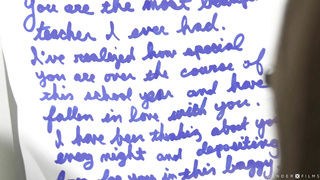 You are the most
teacher I ever had.
I've realized how special
you are over the course of
this school year and have
fallen in love with you.
I have been thinking about you
every night and depositing
for you in this baggy